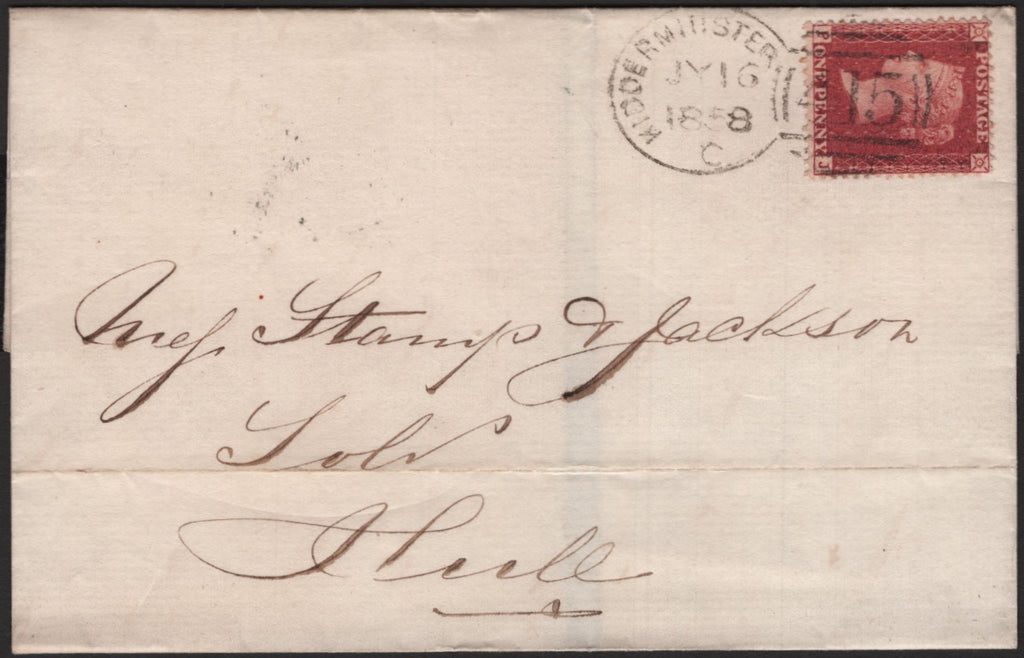 KIDDERMINSTER
JY 16
1858
C
POSTAGE
ONE PENNY
J
Mess Stamp & Jackson
Solrs
Hull